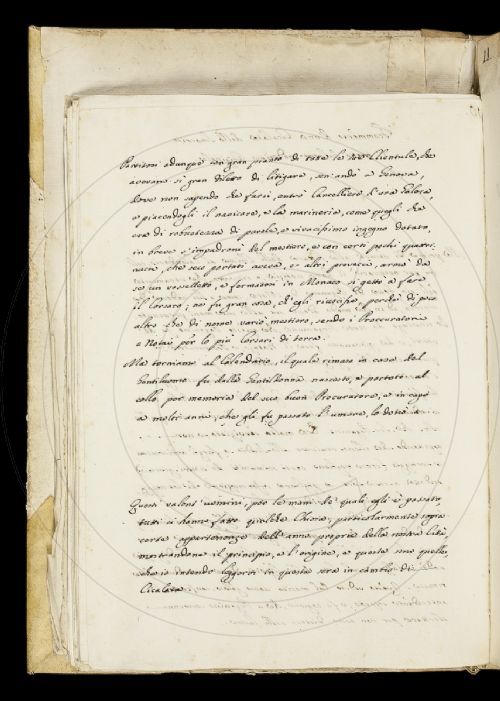 Partitosi adunque con gran pianto di tutte le sue Clientule, che
avevano sì gran diletto di litigare, sen'andò a Genova,
dove non sapendo che farsi, entrò Cancelliere d'una Galera,
e piacendogli il navicare, e la marineria, come quegli che
era di robustezza di parole, e vivacissimo ingegno dotato,
in breve s'impadronì del mestiere, e con certi pochi quattri-
nacci, che seco portati aveva, e altri provacci, armò da
se un vasselletto, e fermatosi in Monaco si gettò a fare
il Corsaro; nè fu gran cosa, ch'egli riuscisse, perchè di poco
altro che di nome variò mestiero, sendo i Procuratori
e Notai per lo più Corsari di terra.
Ma torniamo al Calendario, il quale rimaso in casa del
Gentiluomo fu dalla Gentildonna nascosto, e portato al
collo per memoria del suo buon Procuratore, e in capo
a molti anni, che gli fu passato l'umore, lo dette a
Questi valenti uomini, per le mani de' quali egli è passato,
tutti ci hanno fatto qualche Chiosa, particolarmente sopra
certe appartenenze dell'anno proprie della nostra Città,
mostrandone il principio, e l'origine, e queste sono quelle,
che io intendo leggervi in questa sera in cambio di
Cicalata
11